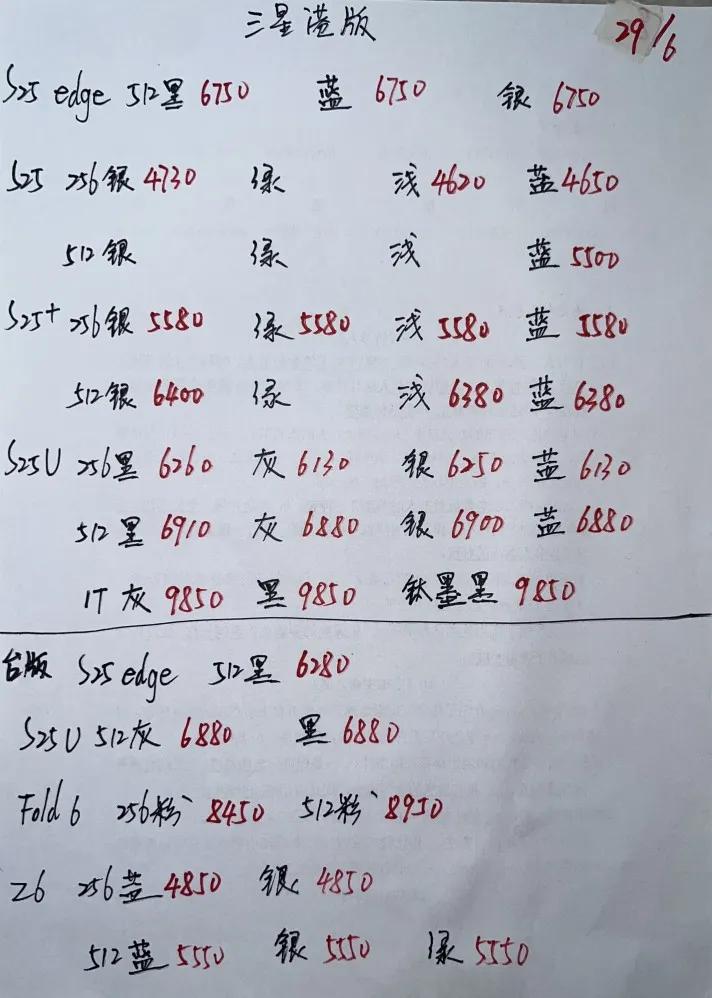 三星港版 29/6
S25 edge 512黑 6750 蓝 6750 银 6750
S25 256银 4730 绿 浅 4620 蓝 4650
512银 绿 浅 蓝 5500
S25+ 256银 5580 绿 5580 浅 5580 蓝 5580
512银 6400 绿 浅 6380 蓝 6380
S25U 256黑 6260 灰 6130 银 6250 蓝 6130
512黑 6910 灰 6880 银 6900 蓝 6880
1T 灰 9850 黑 9850 钛墨黑 9850
台版 S25 edge 512黑 6280
S25U 512灰 6880 黑 6880
Fold 6 256粉 8450 512粉 8950
Z6 256蓝 4850 银 4850
512蓝 5550 银 5550 绿 5550